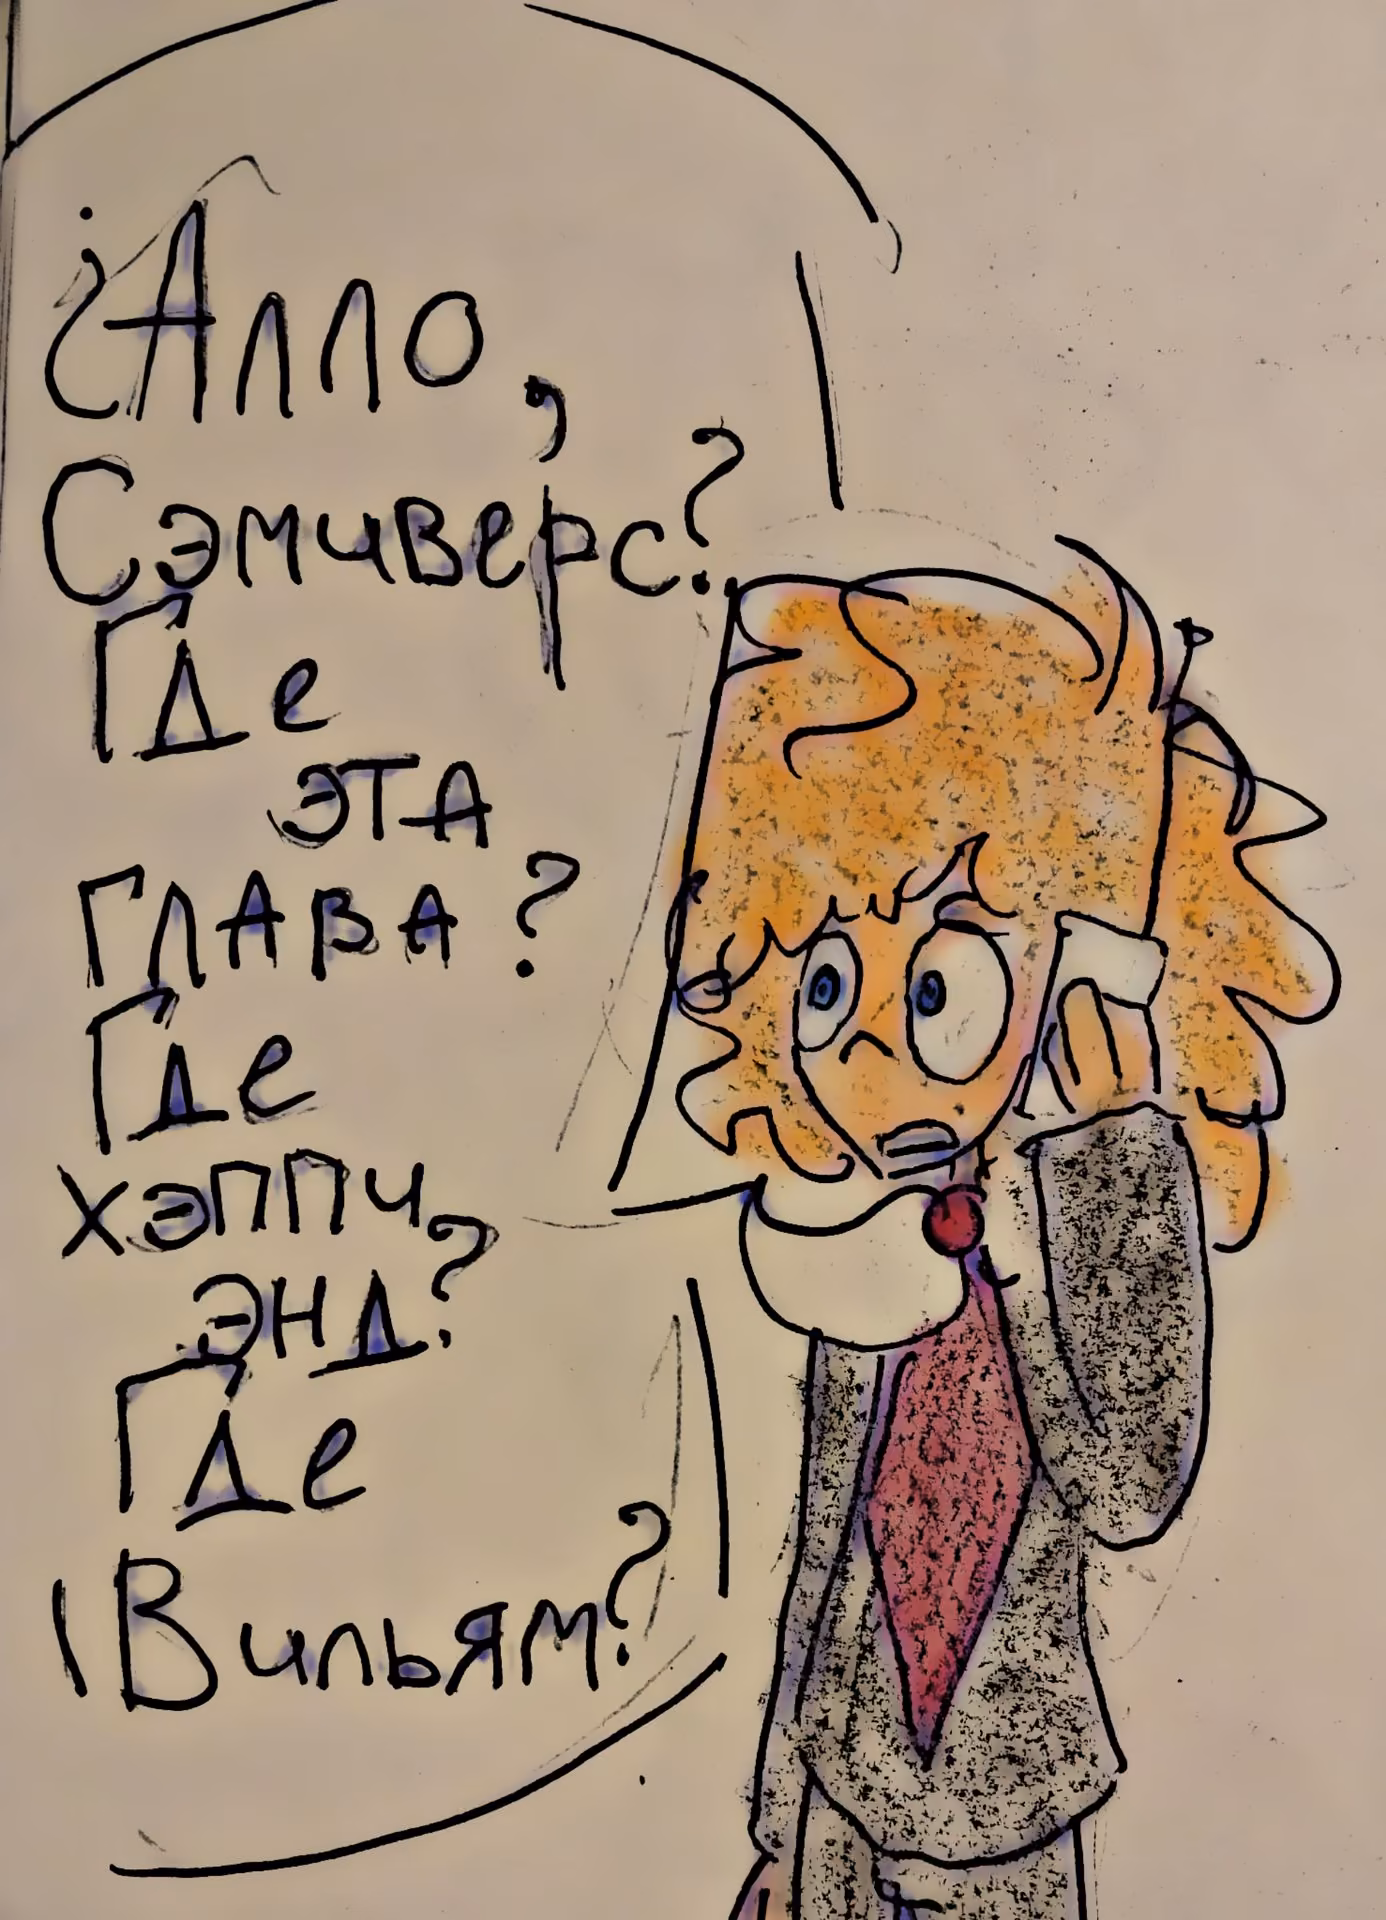 ¿Алло,
Сэмиверс?
Где
эта
глава?
Где
хэппи
энд?
Где
Вильям?